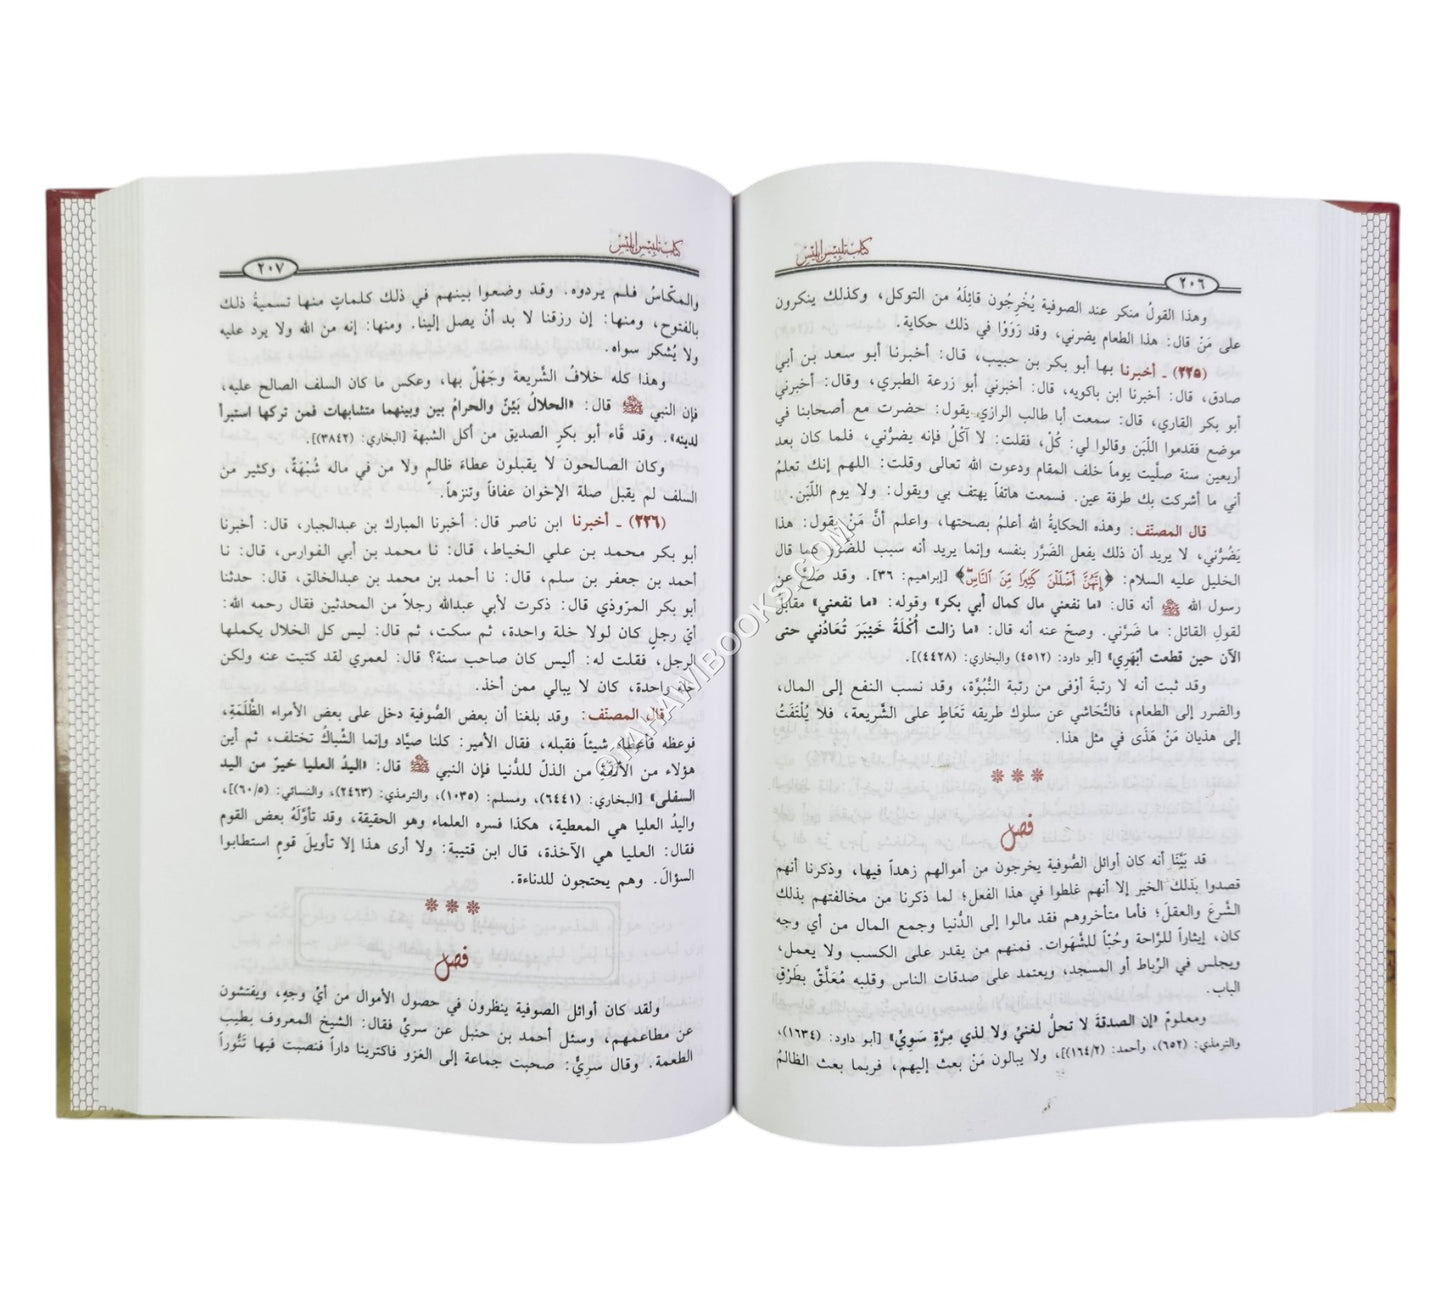 كتاب تلبيس إبليس
٢٠٦
وهذا القولُ منكر عند الصوفية يُخْرِجُون قائِلَهُ من التوكل، وكذلك ينكرون
على مَنْ قال: هذا الطعام يضرني، وقد رَوَوْا في ذلك حكاية.
(٢٢٥) ـ أخبرنا بها أبو بكر بن حبيب، قال: أخبرنا أبو سعد بن أبي
صادق، قال: أخبرنا ابن باكويه، قال: أخبرني أبو زرعة الطبري، وقال: أخبرني
أبو بكر القاري، قال: سمعت أبا طالب الرازي يقول: حضرت مع أصحابنا في
موضع فقدموا اللَبَن وقالوا لي: كُلْ، فقلت: لا آكُلُ فإنه يضرُّني، فلما كان بعد
أربعين سنة صلَّيت يوماً خلف المقام ودعوت الله تعالى وقلت: اللهم إنك تعلمُ
أني ما أشركت بك طرفة عين. فسمعت هاتفاً يهتف بي ويقول: ولا يوم اللَّبَن.
قال المصنّف: وهذه الحكايةُ الله أعلمُ بصحتها، واعلم أنَّ مَنْ يقول: هذا
يَضُرُّني، لا يريد أن ذلك يفعل الضَّرَر بنفسه وإنما يريد أنه سبب للضَّرَر كما قال
الخليل عليه السلام: ﴿إِنَّهُنَّ أَضْلَلْنَ كَثِيرًا مِّنَ ٱلنَّاسِ﴾ [إبراهيم: ٣٦]. وقد صحَّ عن
رسول الله ﷺ أنه قال: «ما نفعني مال كمال أبي بكر» وقوله: «ما نفعني» مقابل
لقولِ القائل: ما ضَرَّني. وصحَ عنه أنه قال: «ما زالت أُكْلَةُ خَيْبَرَ تُعَادُني حتى
الآن حين قطعت أَبْهَرِي» [أبو داود: (٤٥١٢) والبخاري: (٤٤٢٨)].
وقد ثبت أنه لا رتبةَ أوْفى من رتبة النُّبُوَّة، وقد نسب النفع إلى المال،
والضرر إلى الطعام، فالتَّحَاشي عن سلوك طريقه تَعَاطٍ على الشَّريعة، فلا يُلْتَفَتُ
إلى هذيان مَنْ هَذَى في مثل هذا.
فصل
قد بَيَّنَا أنه كان أوائل الصُّوفية يخرجون من أموالهم زهداً فيها، وذكرنا أنهم
قصدوا بذلك الخير إلا أنهم غلطوا في هذا الفعل؛ لما ذكرنا من مخالفتهم بذلك
الشَرعَ والعقلَ؛ فأما متأخروهم فقد مالوا إلى الدُّنيا وجمع المال من أي وجه
كان، إيثاراً للرَّاحة وحُبّاً للشَهَوات. فمنهم من يقدر على الكسب ولا يعمل،
ويجلس في الرِّباط أو المسجد، ويعتمد على صدقات الناس وقلبه مُعَلَّقٌ بطَرْقِ
الباب.
ومعلومٌ «إن الصدقةَ لا تحلُّ لغنيٍّ ولا لذي مِرَّةٍ سَوِيٍّ» [أبو داود: (١٦٣٤)،
والترمذي: (٦٥٢)، وأحمد: (١٦٤/٢)]، ولا يبالون مَنْ بعث إليهم، فربما بعث الظالمُ
كتاب تلبيس إبليس
٢٠٧
والمكّاسُ فلم يردوه. وقد وضعوا بينهم في ذلك كلماتٍ منها تسميةُ ذلك
بالفتوح، ومنها: إن رزقنا لا بد أنْ يصل إلينا. ومنها: إنه من الله ولا يرد عليه
ولا يُشكر سواه.
وهذا كله خلافُ الشَّريعة وجَهْلٌ بها، وعكس ما كان السلف الصالح عليه،
فإن النبي ﷺ قال: «الحلالُ بَيِّنٌ والحرامُ بين وبينهما متشابهات فمن تركها استبرأ
لدينه». وقد قَاء أبو بكرٍ الصديق من أكل الشبهة [البخاري: (٣٨٤٢)].
وكان الصالحون لا يقبلون عطاءَ ظالمٍ ولا من في ماله شُبْهَةٌ، وكثير من
السلف لم يقبل صلة الإخوان عفافاً وتنزهاً.
(٢٢٦) ـ أخبرنا ابن ناصر قال: أخبرنا المبارك بن عبدالجبار، قال: أخبرنا
أبو بكر محمد بن علي الخياط، قال: نا محمد بن أبي الفوارس، قال: نا
أحمد بن جعفر بن سلم، قال: نا أحمد بن محمد بن عبدالخالق، قال: حدثنا
أبو بكر المرّوذي قال: ذكرت لأبي عبدالله رجلاً من المحدثين فقال رحمه الله:
أيّ رجلٍ كان لولا خلة واحدة، ثم سكت، ثم قال: ليس كل الخلال يكملها
الرجل، فقلت له: أليس كان صاحب سنة؟ قال: لعمري لقد كتبت عنه ولكن
خلَّة واحدة، كان لا يبالي ممن أخذ.
قال المصنّف: وقد بلغنا أن بعض الصُّوفية دخل على بعض الأمراء الظَّلَمَةِ،
فوعظه فأعطاه شيئاً فقبله، فقال الأمير: كلنا صيَّاد وإنما الشِّباكُ تختلف، ثم أين
هؤلاء من الأَنَفَةِ من الذلّ للدُّنيا فإن النبي ﷺ قال: «اليدُ العليا خيرٌ من اليد
السفلى» [البخاري: (٦٤٤١)، ومسلم: (١٠٣٥)، والترمذي: (٢٤٦٣)، والنسائي: (٦٠/٥)]،
واليدُ العليا هي المعطية، هكذا فسره العلماء وهو الحقيقة، وقد تأوَّلَهُ بعض القوم
فقال: العليا هي الآخذة، قال ابن قتيبة: ولا أرى هذا إلا تأويلَ قومٍ استطابوا
السؤالَ. وهم يحتجون للدناءة.
فصل
ولقد كان أوائل الصوفية ينظرون في حصول الأموال من أيّ وجهٍ، ويفتشون
عن مطاعمهم، وسئل أحمد بن حنبل عن سريّ فقال: الشيخ المعروف بطيب
الطعمة. وقال سريٌّ: صحبت جماعة إلى الغزو فاكترينا داراً فنصبت فيها تَنُّوراً
©TAHAWIBOOKS.COM